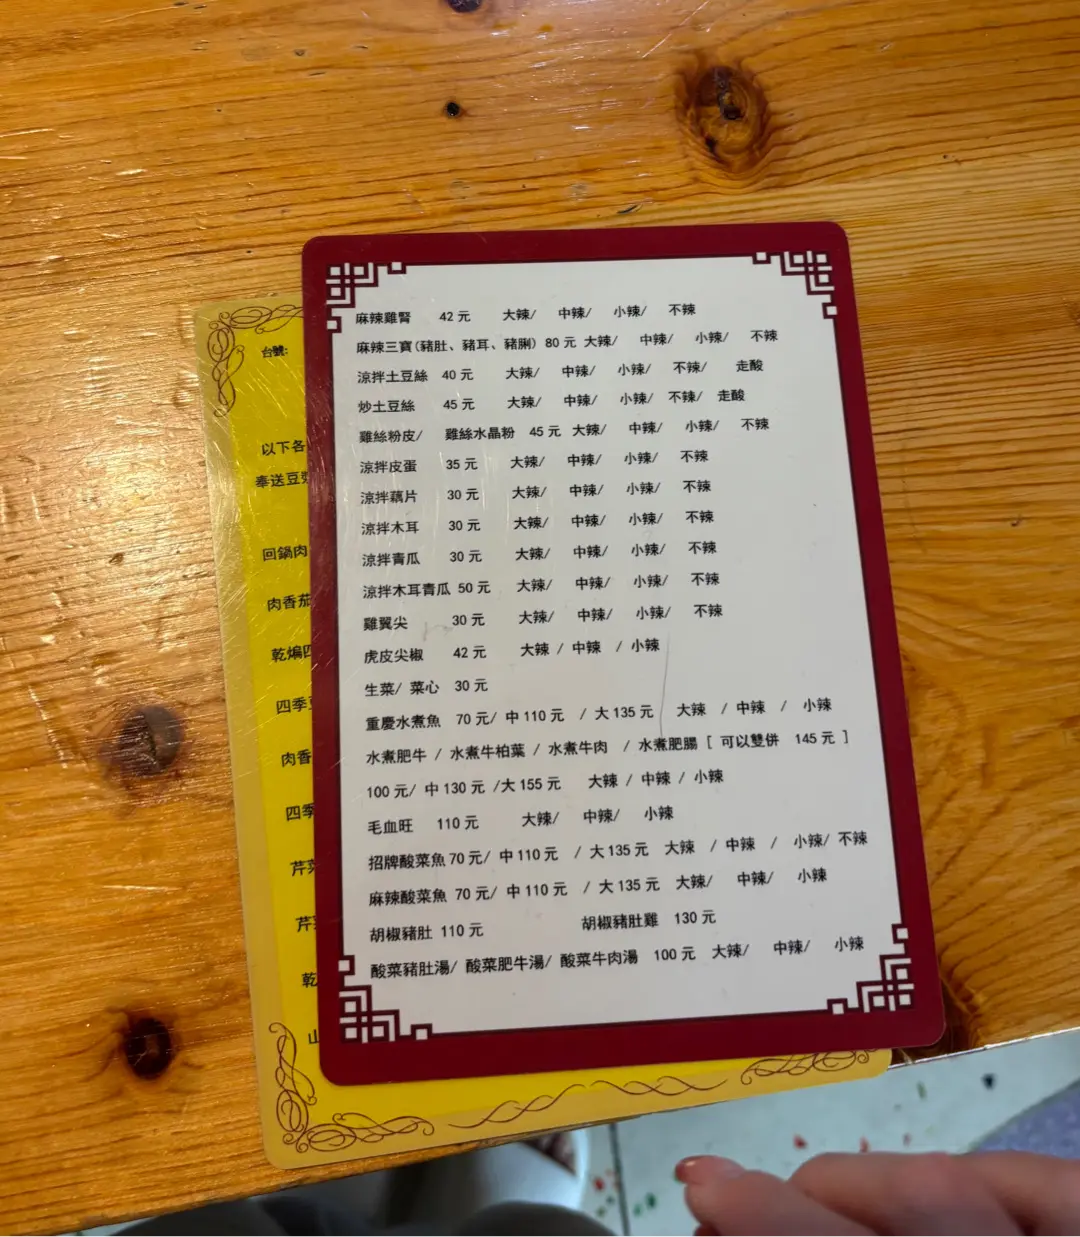 麻辣雞腎 42 元 大辣/ 中辣/ 小辣/ 不辣
麻辣三寶(豬肚、豬耳、豬脷) 80 元 大辣/ 中辣/ 小辣/ 不辣
涼拌土豆絲 40 元 大辣/ 中辣/ 小辣/ 不辣/ 走酸
炒土豆絲 45 元 大辣/ 中辣/ 小辣/ 不辣/ 走酸
雞絲粉皮/ 雞絲水晶粉 45 元 大辣/ 中辣/ 小辣/ 不辣
涼拌皮蛋 35 元 大辣/ 中辣/ 小辣/ 不辣
涼拌藕片 30 元 大辣/ 中辣/ 小辣/ 不辣
涼拌木耳 30 元 大辣/ 中辣/ 小辣/ 不辣
涼拌青瓜 30 元 大辣/ 中辣/ 小辣/ 不辣
涼拌木耳青瓜 50 元 大辣/ 中辣/ 小辣/ 不辣
雞翼尖 30 元 大辣/ 中辣/ 小辣/ 不辣
虎皮尖椒 42 元 大辣 / 中辣 / 小辣
生菜/ 菜心 30 元
重慶水煮魚 70 元/ 中 110 元 / 大 135 元 大辣 / 中辣 / 小辣
水煮肥牛 / 水煮牛柏葉 / 水煮牛肉 / 水煮肥腸 [ 可以雙併 145 元 ]
100 元/ 中 130 元 /大 155 元 大辣 / 中辣 / 小辣
毛血旺 110 元 大辣/ 中辣/ 小辣
招牌酸菜魚 70 元/ 中 110 元 / 大 135 元 大辣 / 中辣 / 小辣/ 不辣
麻辣酸菜魚 70 元/ 中 110 元 / 大 135 元 大辣/ 中辣/ 小辣
胡椒豬肚 110 元 胡椒豬肚雞 130 元
酸菜豬肚湯/ 酸菜肥牛湯/ 酸菜牛肉湯 100 元 大辣/ 中辣/ 小辣
台號:
以下各
奉送豆漿
回鍋肉
肉香茄
乾煸四
四季豆
肉香
四季
芹菜
芹
乾
山